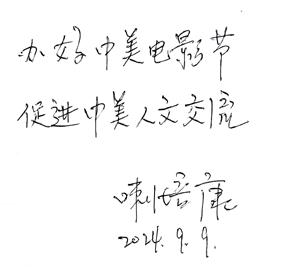 办好中美电影节
促进中美人文交流
喇培康
2024.9.9.